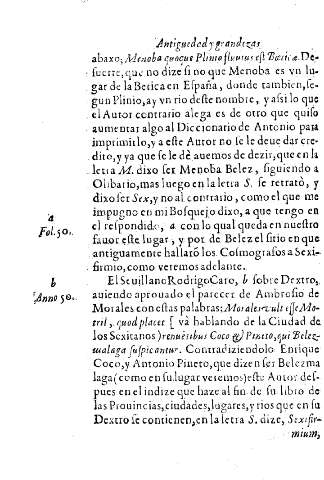 Antiguedad y grandezas
abaxo; Menoba quoque Plinio fluuius est Bœtica. De-
suerte, que no dize si no que Menoba es vn lu-
gar de la Betica en España, donde tambien, se-
gun Plinio, ay vn rio deste nombre, y assi lo que
el Autor contrario alega es de otro que quiso
aumentar algo al Diccionario de Antonio para
imprimirlo, y a este Autor no se le deue dar cre-
dito, y ya que se le dè auemos de dezir, que en la
letra M. dixo ser Menoba Belez, siguiendo a
Olibario, mas luego en la letra S. se retratò, y
dixo ser Sex, y no al contrario, como el que me
impugno en mi Bosquejo dixo, a que tengo en
a
Fol. 50.
el respondido, a con lo qual queda en nuestro
fauor este lugar, y por de Belez el sitio en que
antiguamente hallarô los Cosmografos a Sexi-
firmio, como veremos adelante.
b
Anno 50.
El Seuillano Rodrigo Caro, b sobre Dextro,
auiendo aprouado el parecer de Ambrosio de
Morales con estas palabras; Morales vult esse Mo-
tril, quod placet [ và hablando de la Ciudad de
los Sexitanos ) renuẽtibus Coco & Pineto, qui Belez-
malaga suspicantur. Contradiziendolo Enrique
Coco, y Antonio Pineto, que dizen ser Belezma
laga (como en su lugar veremos) este Autor des-
pues en el indice que haze al fin de su libro de
las Prouincias, ciudades, lugares, y rios que en su
Dextro se contienen, en la letra S. dize, Sexifir-
mium,